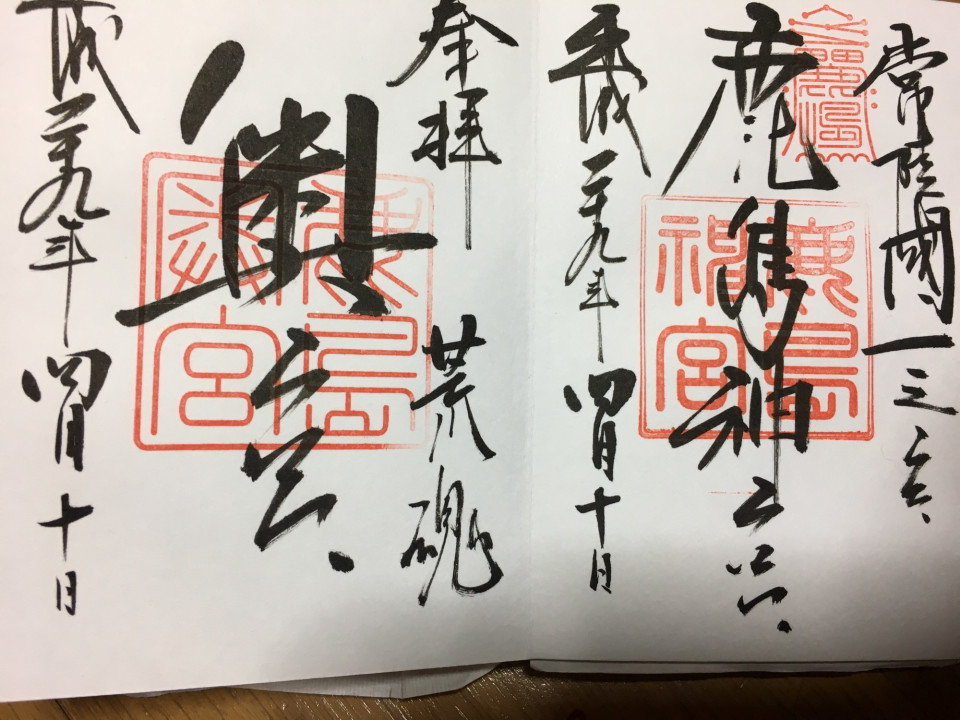 常陸國一之宮
鹿島神宮
平成二十九年四月十日
鹿島
神宮
奉拝 荒魂
奥宮
平成二十九年四月十日
鹿島
奥宮